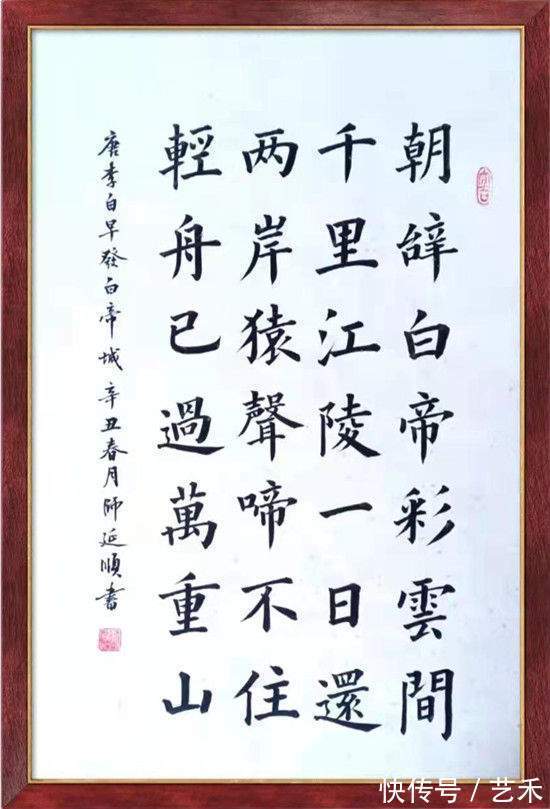 朝辞白帝彩雲間
千里江陵一日還
两岸猿聲啼不住
輕舟已過萬重山
唐李白早發白帝城辛丑春月師延順書
快传号/艺禾